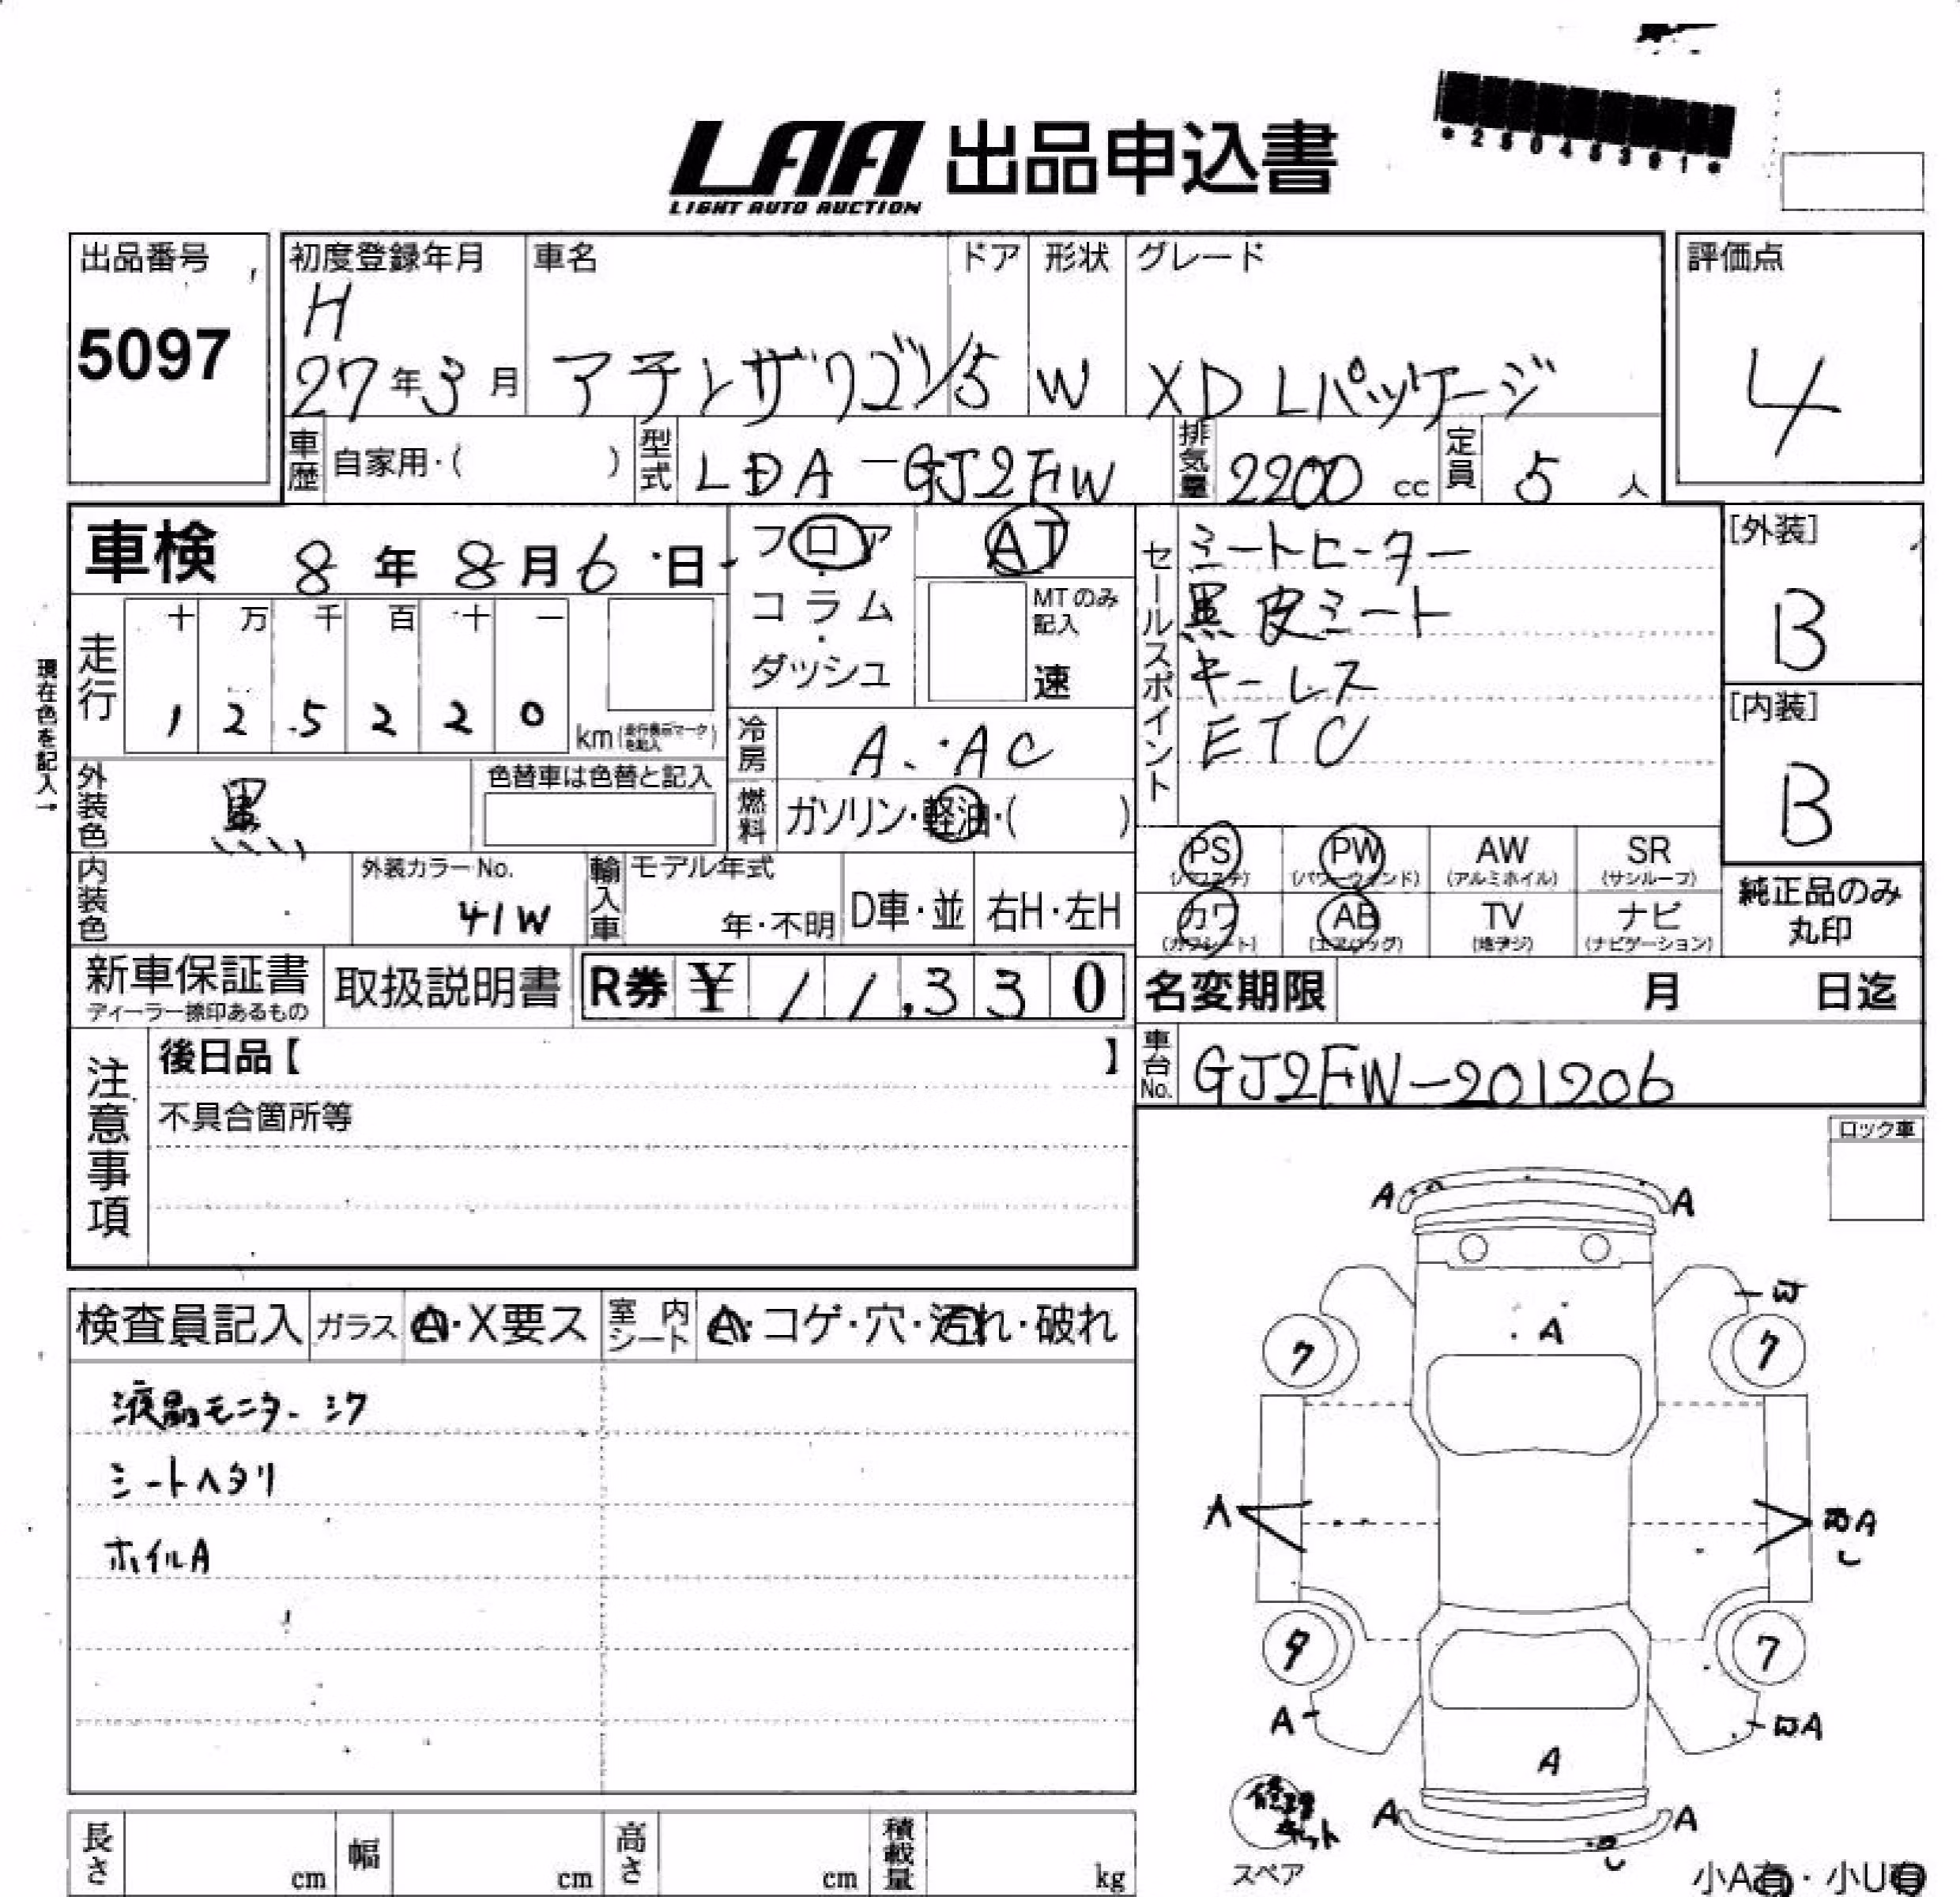 LAA 出品申込書
LIGHT AUTO AUCTION
出品番号
5097
初度登録年月
H
27年3月
車名
アテンザワゴン
ドア
5
形状
W
グレード
XD Lパッケージ
評価点
4
車歴 自家用・( )
型式 LDA-GJ2FW
排気量 2200 cc
定員 5 人
車検 8年8月6日
フロア・コラム・ダッシュ
AT
MTのみ記入
速
セールスポイント
シートヒーター
黒皮シート
キーレス
ETC
[外装]
B
[内装]
B
現在色を記入→
走行
十 万 千 百 十 一
1 2 5 2 2 0 km
冷房 A.AC
燃料 ガソリン・軽油・( )
外装色 黒
色替車は色替と記入
内装色
外装カラーNo.
41W
輸入車
モデル年式
年・不明
D車・並
右H・左H
PS (パワステ)
PW (パワーウインド)
AW (アルミホイル)
SR (サンルーフ)
カワ (カワシート)
AB (エアバッグ)
TV (地デジ)
ナビ (ナビゲーション)
純正品のみ
丸印
新車保証書
ディーラー捺印あるもの
取扱説明書
R券 ¥ 11,330
名変期限 月 日迄
車台No. GJ2FW-201206
注意事項
後日品【 】
不具合箇所等
ロック車
検査員記入
ガラス A・X要ス
室内シート A・コゲ・穴・汚れ・破れ
液晶モニターシワ
シートヘタリ
ホイルA
A A
W
A
7 7
A
A
7
A
A
A
A A
修理キット
スペア
小A有・小U有
長さ cm
幅 cm
高さ cm
積載量 kg